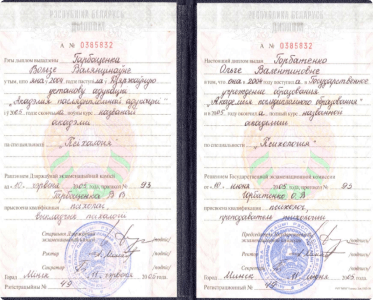 А № 0385832
Гэты дыплом выдадзены Гарбаценка
Вользе Валянцінаўне
у тым, што яна ў 2004 годзе паступіла ў Дзяржаўную
установу адукацыі
"Акадэмія паслядыпломнай адукацыі"
і ў 2005 годзе скончыла поўны курс названай
акадэміі
па спецыяльнасці "Псіхалогія"
Рашэннем Дзяржаўнай экзаменацыйнай камісіі
ад 10 чэрвеня 2005 года, пратакол № 93
Гарбаценка В В
прысвоена кваліфікацыя псіхолаг,
выкладчык псіхалогіі
Старшыня Дзяржаўнай
экзаменацыйнай камісіі
Рэктар
Сакратар
Горад Мінск 11 чэрвеня 2005
Рэгістрацыйны № 49
А № 0385832
Настоящий диплом выдан Горбатенко
Ольге Валентиновне
в том, что она в 2004 году поступила в Государственное
учреждение образования
"Академия последипломного образования"
и в 2005 году окончила полный курс названной
академии
по специальности "Психология"
Решением Государственной экзаменационной комиссии
от 10 июня 2005 года, протокол № 93
Горбатенко О.В
присвоена квалификация психолог,
преподаватель психологии
Председатель Государственной
экзаменационной комиссии
Ректор
Секретарь
Город Минск 11 июня 2005
Регистрационный № 49